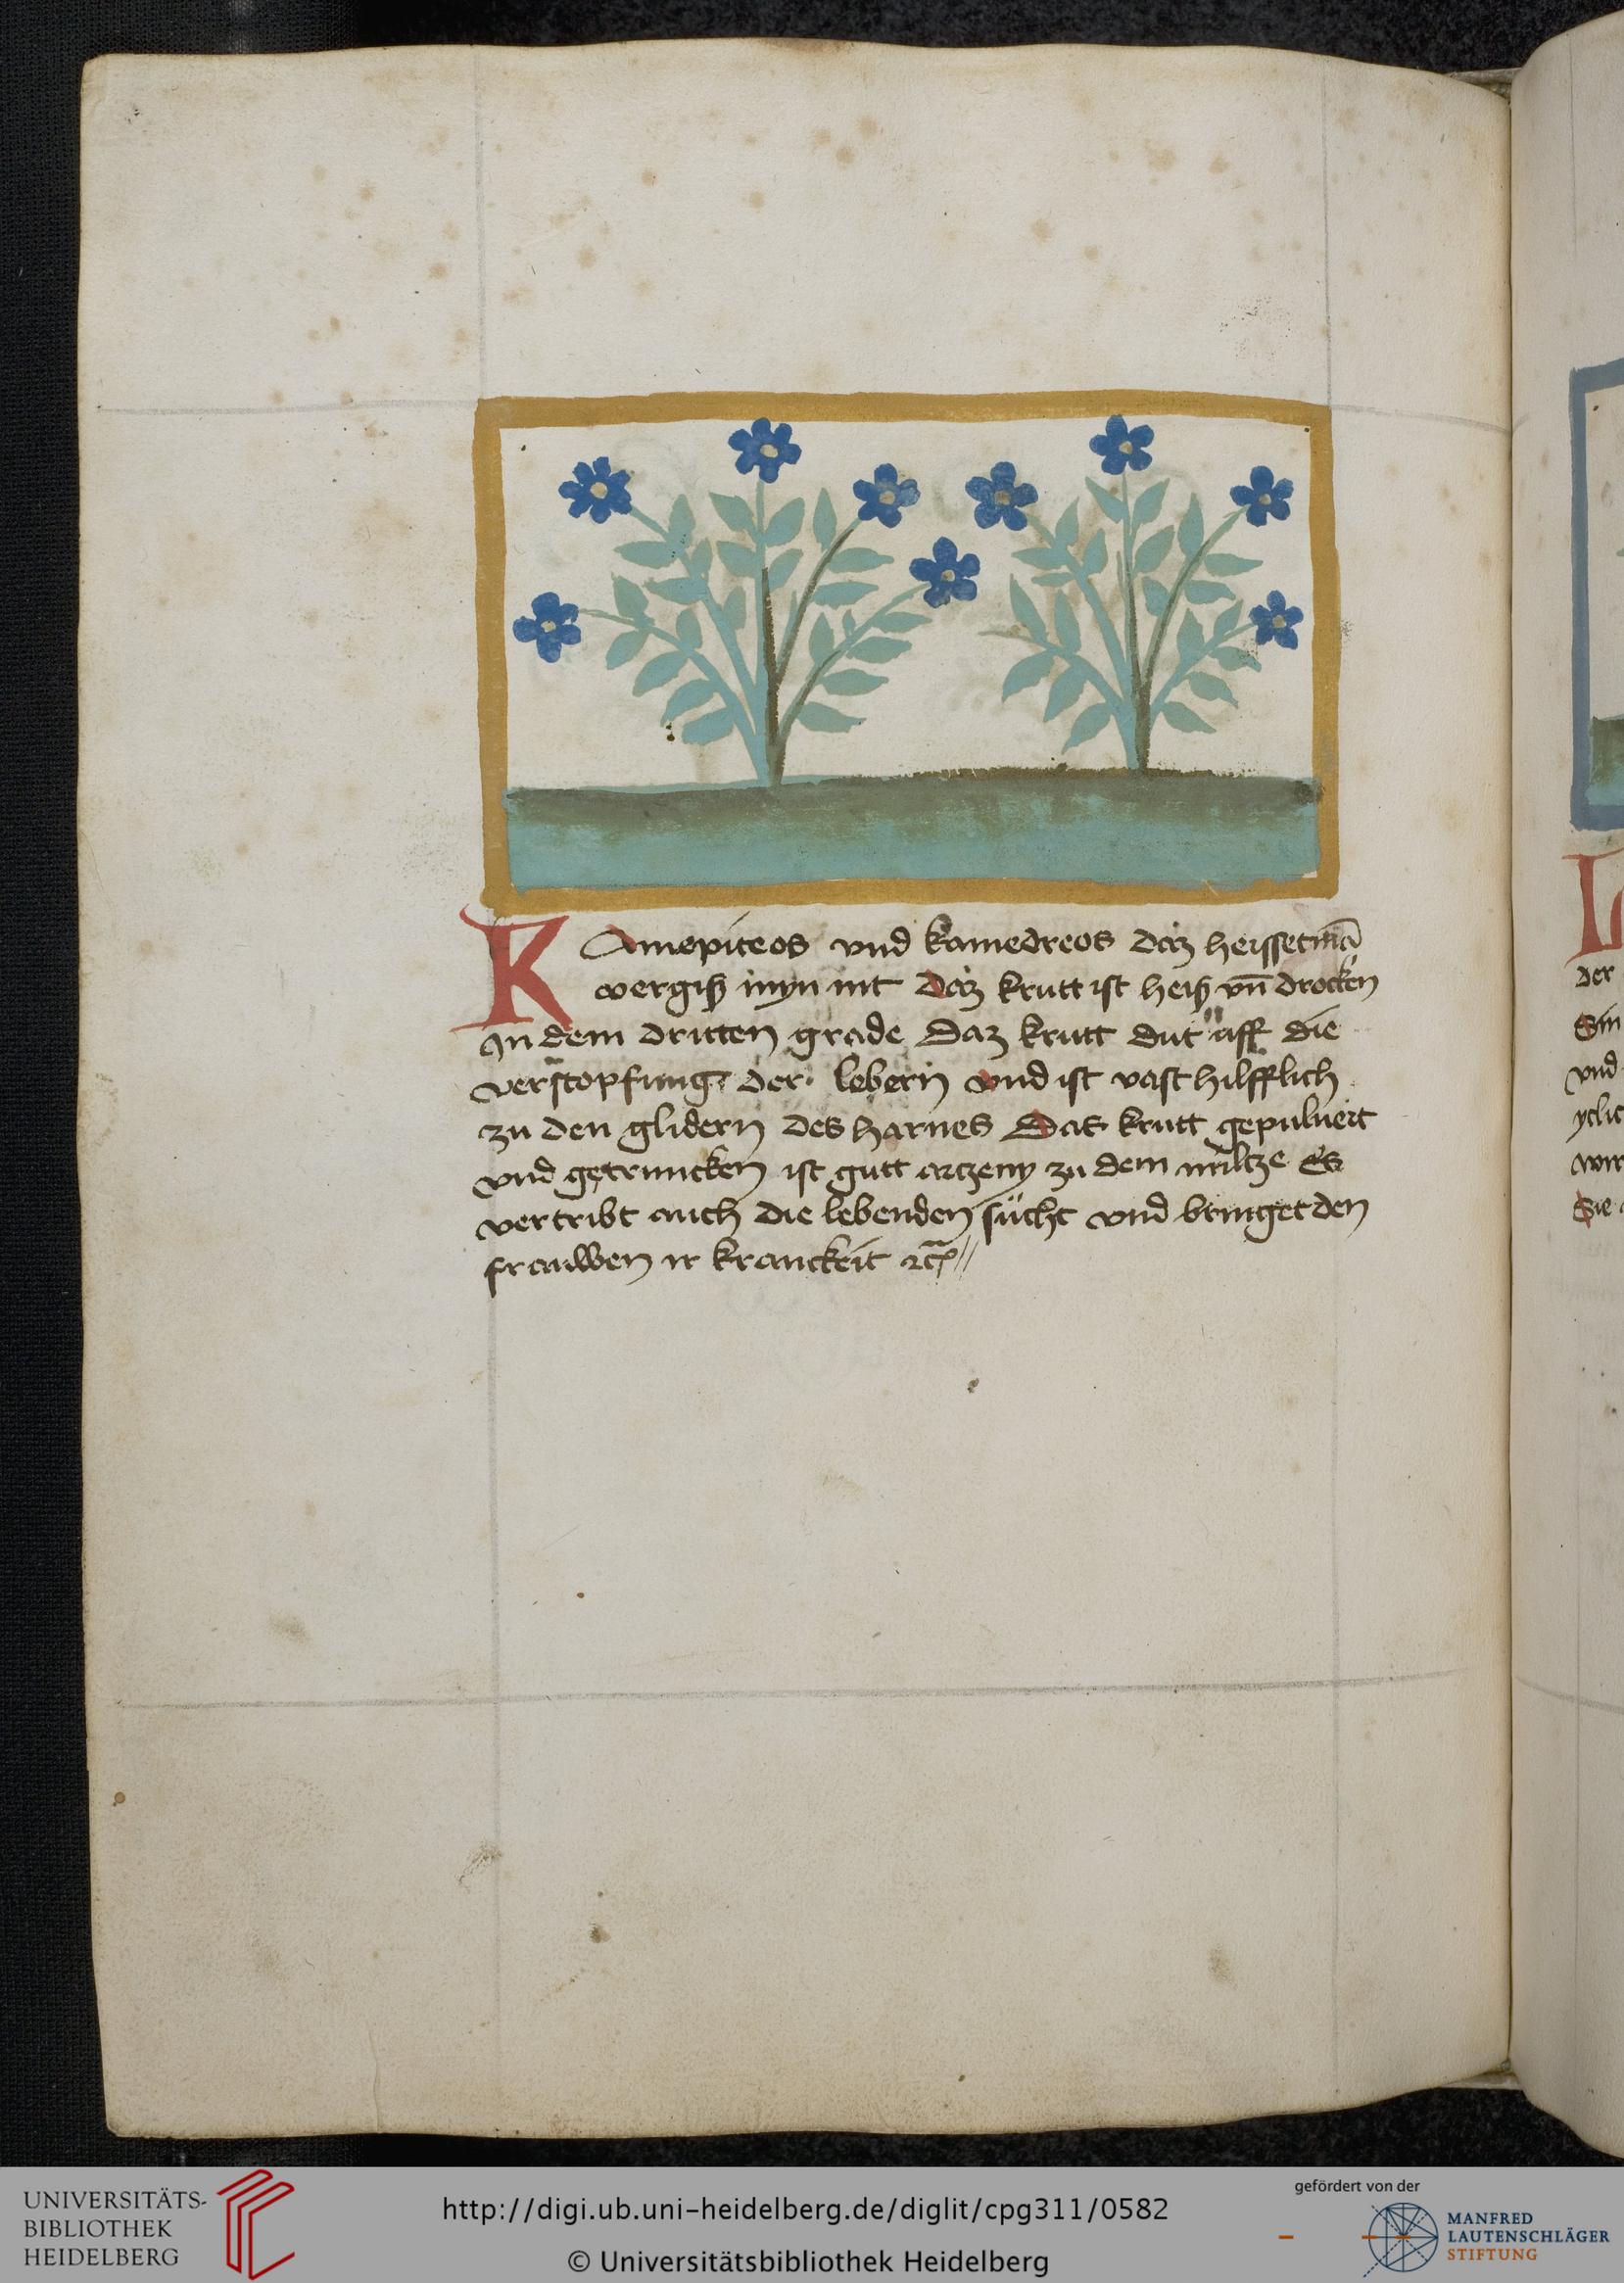 KAmepiteos vnd kamedreos daz heisset mā
vergiß myn nit Daz krutt ist heiß vn̄ drocken
In dem dritten grade Daz krutt dut uff die
verstopfung der lebern vnd ist vast hilfflich
zu den glidern des harnes Das krutt gepuluert
vnd getruncken ist gutt artzeny zu dem miltze Es
vertribt auch die lebenden sücht vnd bringet den
frauwen ir kranckeit
L
der
Sin
vnd
Sie
UNIVERSITÄTS-
BIBLIOTHEK
HEIDELBERG
http://digi.ub.uni-heidelberg.de/diglit/cpg311/0582
© Universitätsbibliothek Heidelberg
gefördert von der
MANFRED
LAUTENSCHLÄGER
STIFTUNG